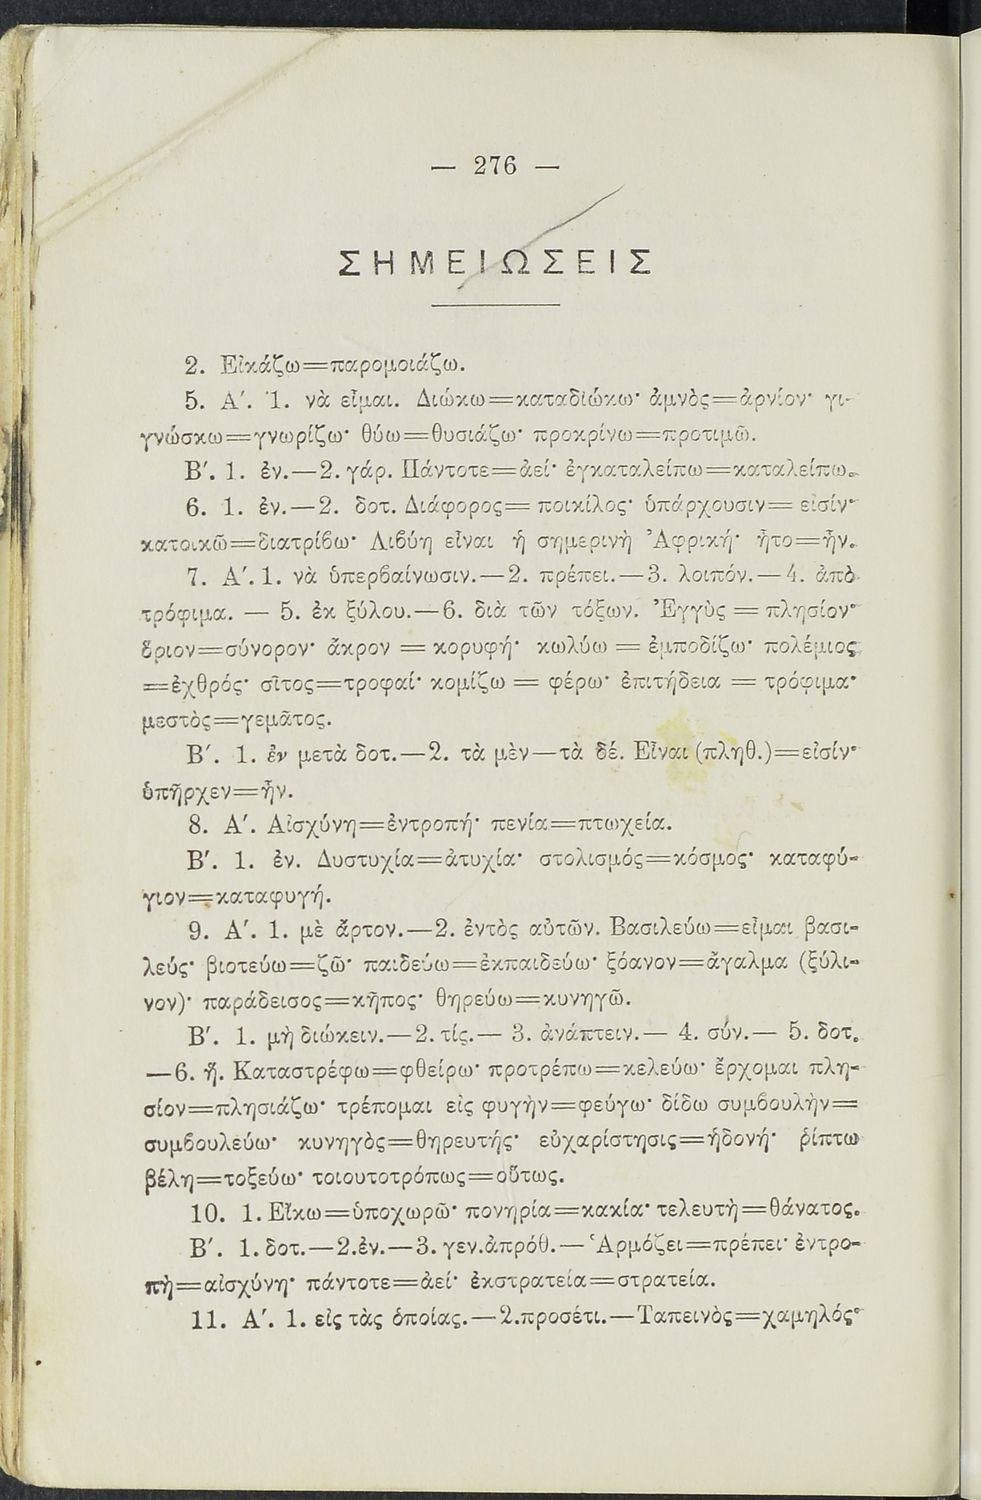 — 276 —
ΣΗΜΕΙΩΣΕΙΣ
2. Εἰκάζω=παρομοιάζω.
5. Α΄. 1. νὰ εἶμαι. Διώκω=καταδιώκω· ἀμνὸς=ἀρνίον· γι-
γνώσκω=γνωρίζω· θύω=θυσιάζω· προκρίνω=προτιμῶ.
Β΄. 1. ἐν.—2. γάρ. Πάντοτε=ἀεί· ἐγκαταλείπω=καταλείπω.
6. 1. ἐν.—2. δοτ. Διάφορος= ποικίλος· ὑπάρχουσιν= εἰσίν·
κατοικῶ=διατρίβω· Λιβύη εἶναι ἡ σημερινὴ Ἀφρική· ἦτο=ἦν.
7. Α΄. 1. νὰ ὑπερβαίνωσιν.—2. πρέπει.—3. λοιπόν.—4. ἀπὸ
τρόφιμα. — 5. ἐκ ξύλου.—6. διὰ τῶν τόξων. Ἐγγὺς = πλησίον·
ὅριον=σύνορον· ἄκρον = κορυφή· κωλύω = ἐμποδίζω· πολέμιος
=ἐχθρός· σῖτος=τροφαί· κομίζω = φέρω· ἐπιτήδεια = τρόφιμα·
μεστὸς=γεμᾶτος.
Β΄. 1. ἐν μετὰ δοτ.—2. τὰ μὲν—τὰ δέ. Εἶναι (πληθ.)=εἰσίν·
ὑπῆρχεν=ἦν.
8. Α΄. Αἰσχύνη=ἐντροπή· πενία=πτωχεία.
Β΄. 1. ἐν. Δυστυχία=ἀτυχία· στολισμός=κόσμος· καταφύ-
γιον=καταφυγή.
9. Α΄. 1. μὲ ἄρτον.—2. ἐντὸς αὐτῶν. Βασιλεύω=εἶμαι βασι-
λεύς· βιοτεύω=ζῶ· παιδεύω=ἐκπαιδεύω· ξόανον=ἄγαλμα (ξύλι-
νον)· παράδεισος=κῆπος· θηρεύω=κυνηγῶ.
Β΄. 1. μὴ διώκειν.—2. τίς.— 3. ἀνάπτειν.— 4. σύν.— 5. δοτ.
—6. ἤ. Καταστρέφω=φθείρω· προτρέπω=κελεύω· ἔρχομαι πλη-
σίον=πλησιάζω· τρέπομαι εἰς φυγὴν=φεύγω· δίδω συμβουλὴν=
συμβουλεύω· κυνηγὸς=θηρευτής· εὐχαρίστησις=ἡδονή· ῥίπτω
βέλη=τοξεύω· τοιουτοτρόπως=οὕτως.
10. 1. Εἴκω=ὑποχωρῶ· πονηρία=κακία· τελευτὴ=θάνατος.
Β΄. 1. δοτ.—2.ἐν.—3. γεν.ἀπρόθ.— Ἁρμόζει=πρέπει· ἐντρο-
πὴ=αἰσχύνη· πάντοτε=ἀεί· ἐκστρατεία=στρατεία.
11. Α΄. 1. εἰς τὰς ὁποίας.—2.προσέτι.—Ταπεινὸς=χαμηλός·